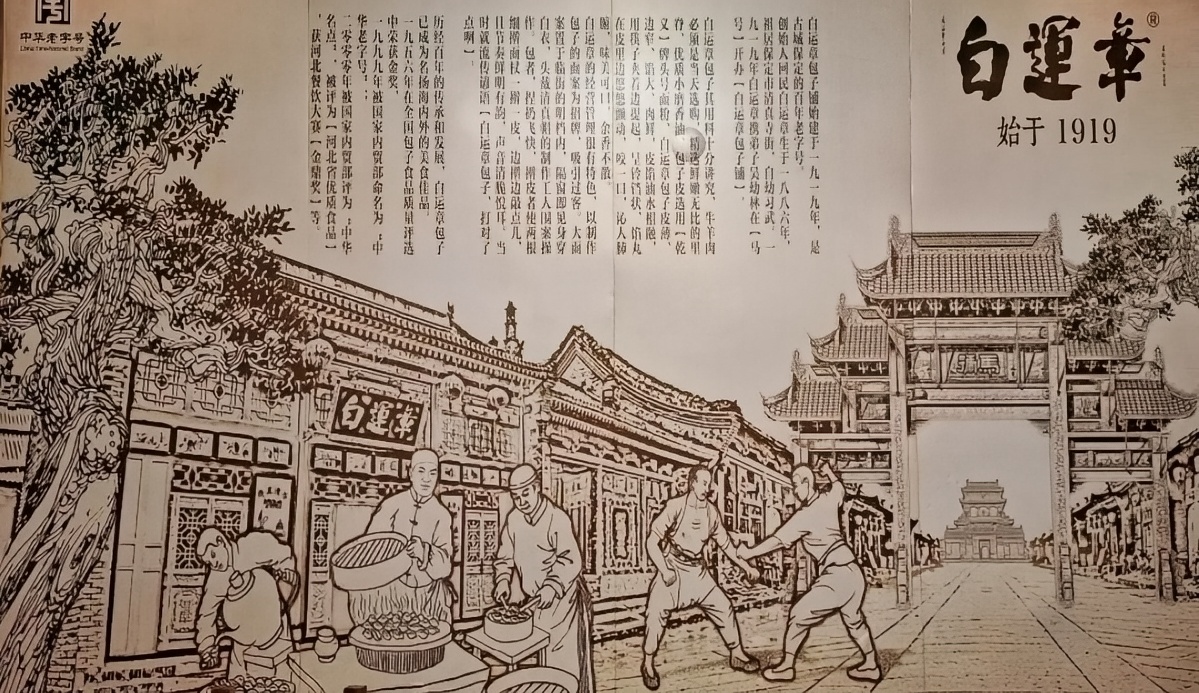 中华老字号
China Time-honored Brand
白運章®
始于 1919
白运章包子铺始建于一九一九年，是
古城保定的百年老字号。
创始人回民白运章生于一八八六年，
祖居保定市清真寺街，自幼习武，一
九一九年白运章携弟子吴幼林在【马
号】开办【白运章包子铺】
白运章包子其用料十分讲究，牛羊肉
必须是当天选购，精选鲜嫩无比的里
脊，优质小磨香油，包子皮选用【乾
义】牌头号面粉，白运章包子皮薄，
边窄，馅大，肉鲜，皮馅油水相融，
用筷子夹着边提起，呈铃铛状，馅丸
在皮里边悠悠颤动，咬一口，沁人肺
腑，味美可口，余香不散。
白运章的经营管理很有特色，以制作
包子的面案为招牌，吸引过客。大面
案置于临街的明档内，隔窗即见身穿
白衣，头戴清真帽的制作工人围案操
作。包者，捏扔飞快，擀皮者使两根
细擀面杖，擀一皮，边擀边敲点儿，
且节奏鲜明有韵，声音清脆悦耳。当
时就流传谚语【白运章包子，打对了
点啊】
历经百年的传承和发展，白运章包子
已成为名扬海内外的美食佳品，
一九五六年在全国包子食品质量评选
中荣获金奖，
一九九九年被国家内贸部命名为：中
华老字号；
二零零零年被国家内贸部评为：中华
名点，被评为【河北省优质食品】
，获河北餐饮大赛【金鼎奖】等。
白運章
馬號